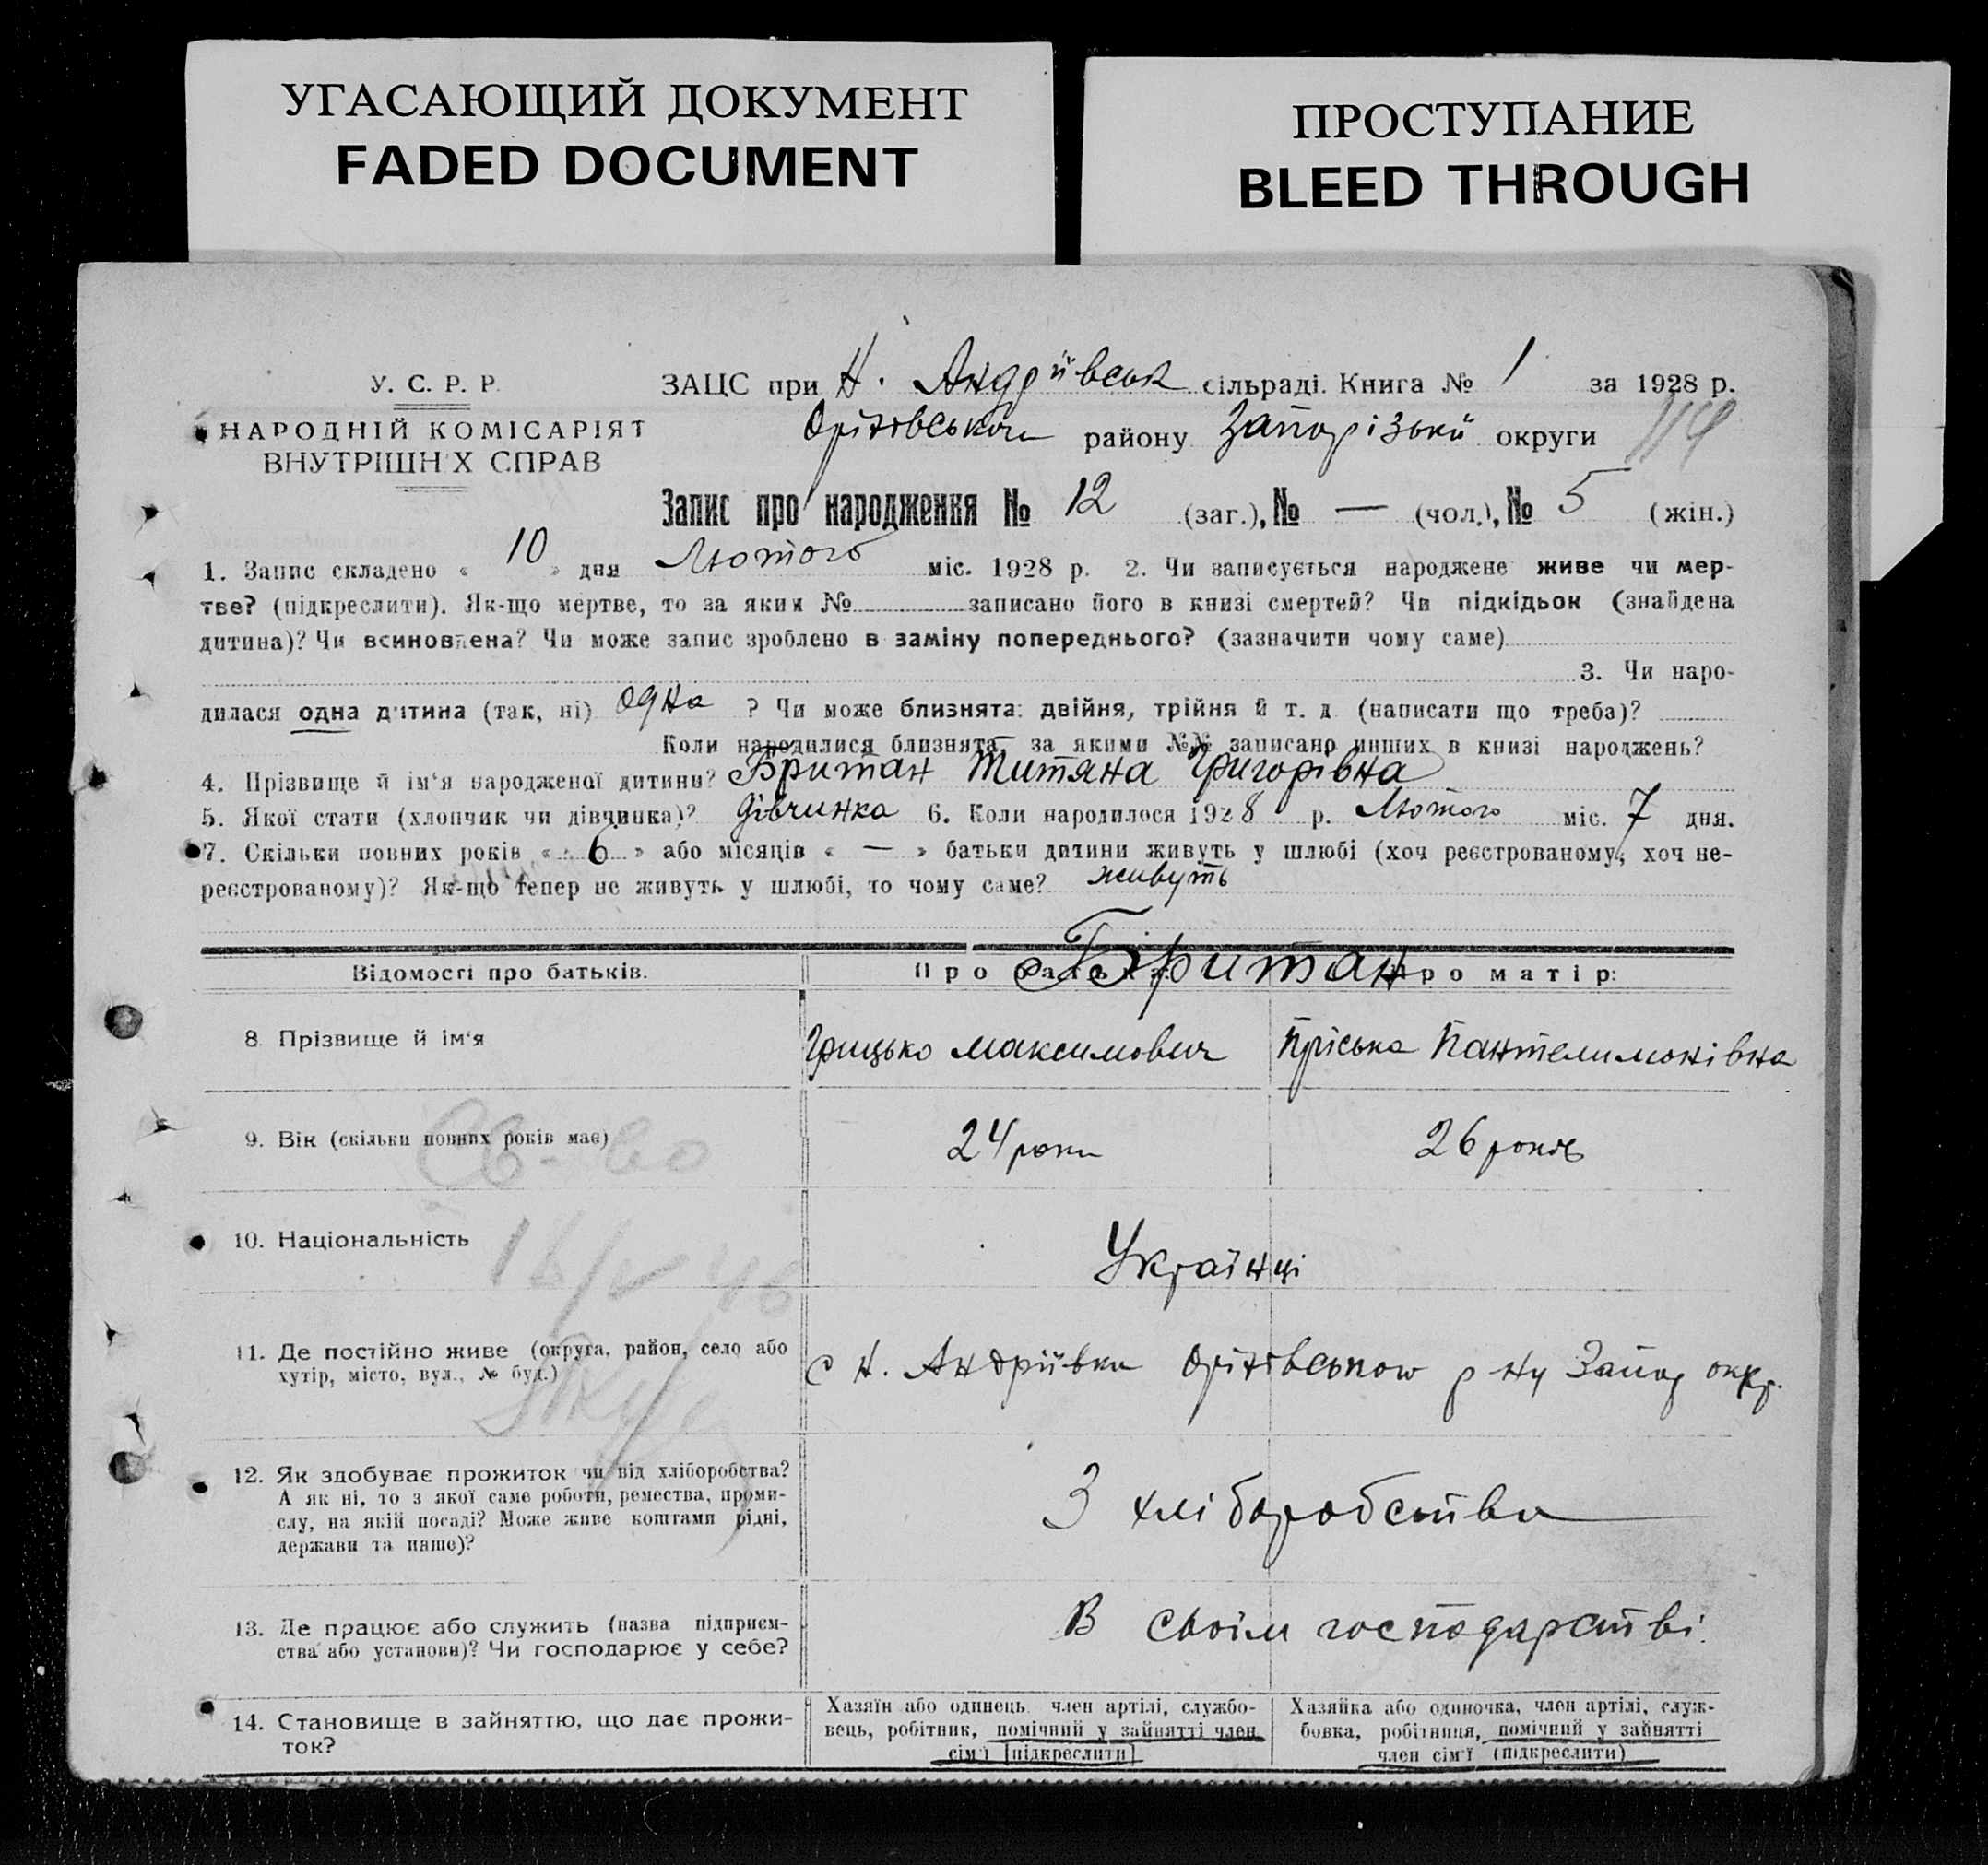 УГАСАЮЩИЙ ДОКУМЕНТ
FADED DOCUMENT
ПРОСТУПАНИЕ
BLEED THROUGH
У. С. Р. Р.
НАРОДНІЙ КОМІСАРІЯТ
ВНУТРІШН Х СПРАВ
ЗАЦС при Н. Андріївськ сільраді. Книга № 1 за 1928 р.
Оріхівського району Запорізької округи 114
Запис про народження № 12 (заг.), № — (чол.), № 5 (жін.)
1. Запис складено « 10 » дня Лютого міс. 1928 р. 2. Чи записується народжене живе чи мер-
тве? (підкреслити). Як-що мертве, то за яким № записано його в книзі смертей? Чи підкідьок (знайдена
дитина)? Чи всиновлена? Чи може запис зроблено в заміну попереднього? (зазначити чому саме)
3. Чи наро-
дилася одна дитина (так, ні) одна ? Чи може близнята: двійня, трійня й т. д. (написати що треба)?
Коли народилися близнята, за якими №№ записано инших в книзі народжень?
4. Прізвище й ім'я народженої дитини? Британ Титяна Григорівна
5. Якої стати (хлопчик чи дівчинка)? дівчинка 6. Коли народилося 1928 р. Лютого міс. 7 дня.
7. Скільки повних років « 6 » або місяців « — » батьки дитини живуть у шлюбі (хоч реєстрованому, хоч не-
реєстрованому)? Як-що тепер не живуть у шлюбі, то чому саме? живуть
Відомості про батьків. Про батька: Британ Про матір:
8. Прізвище й ім'я Грицько Максимович Пріська Пантелимонівна
9. Вік (скільки повних років має) 24 роки 26 років
10. Національність Українці
11. Де постійно живе (округа, район, село або
хутір, місто, вул., № буд.) с Н. Андріївка Оріхівського р ну Запор окр.
12. Як здобуває прожиток чи від хліборобства?
А як ні, то з якої саме роботи, ремества, проми-
слу, на якій посаді? Може живе коштами рідні,
держави та инше)?
З хліборобства
13. Де працює або служить (назва підприєм-
ства або установи)? Чи господарює у себе?
В своїм господарстві.
14. Становище в зайняттю, що дає прожи-
ток?
Хазяїн або одинець, член артілі, службо-
вець, робітник, помічний у зайнятті член
сім'ї [підкреслити]
Хазяйка або одиночка, член артілі, служ-
бовка, робітниця, помічний у зайнятті
член сім'ї (підкреслити)